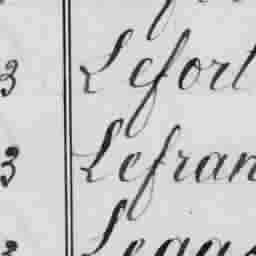 3 Lefort
3 Lefran
3 Legg